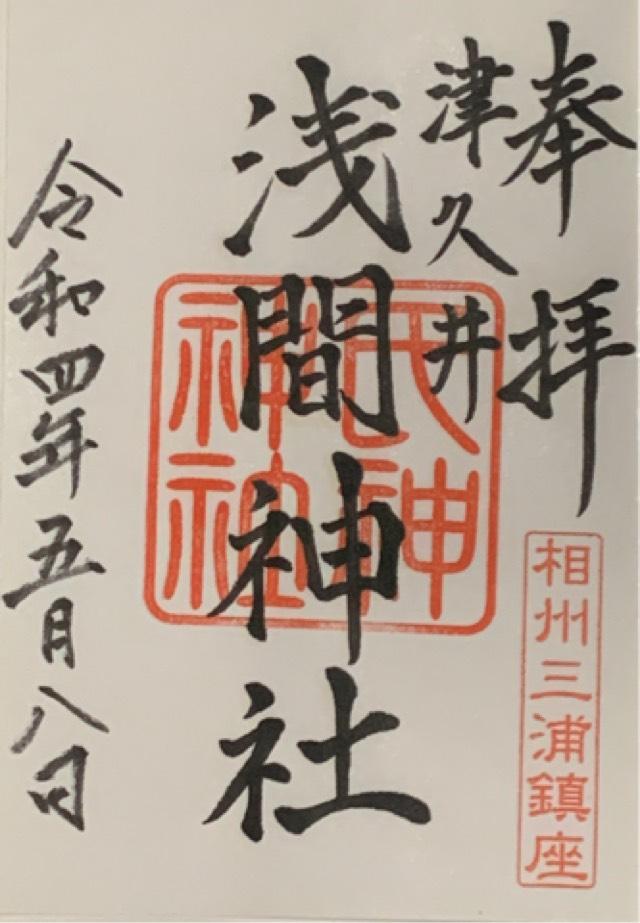 奉拝
相州三浦鎮座
津久井
浅間神社
氏神
神社
令和四年五月八日